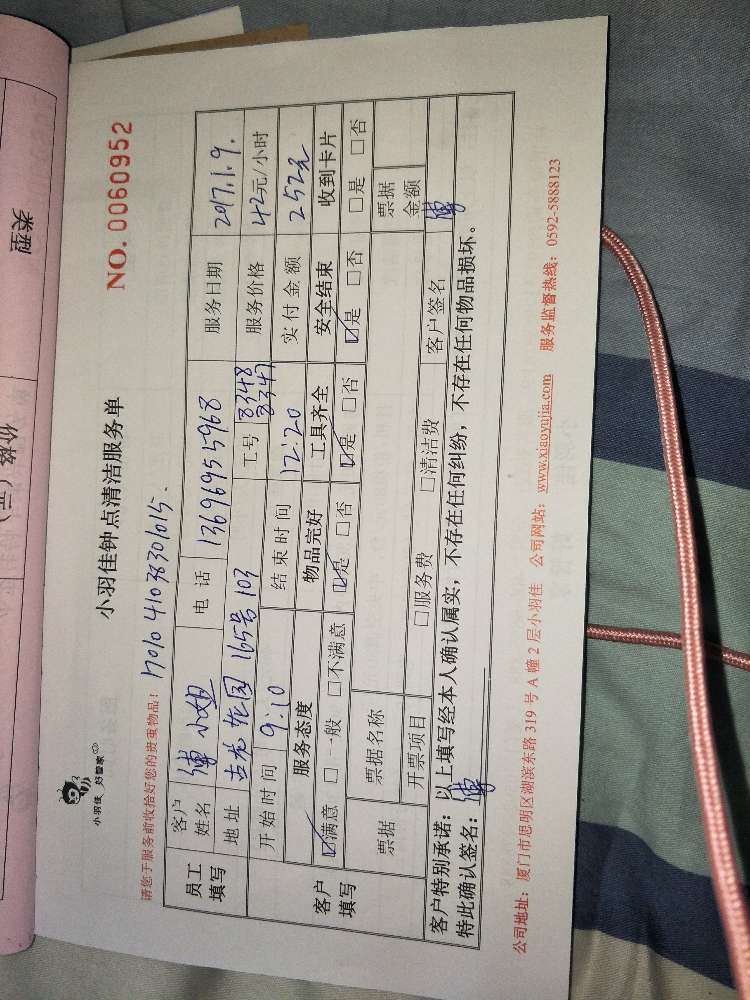 类型
价格（元）
小羽佳 好管家
小羽佳钟点清洁服务单
NO. 0060952
请您于服务前收拾好您的贵重物品!
1701041038301615.
员工填写
客户姓名 傅小姐 电话 13696955968 服务日期 2017.1.9.
地址 古龙花园165号103 工号 8348 8347 服务价格 42元/小时
客户填写
开始时间 9:10 结束时间 12:20 实付金额 252元
服务态度 物品完好 工具齐全 安全结束 收到卡片
☑满意 □一般 □不满意 ☑是 □否 ☑是 □否 ☑是 □否 □是 □否
票据 票据名称 票据金额
开票项目 □服务费 □清洁费 客户签名 傅
客户特别承诺：以上填写经本人确认属实，不存在任何纠纷，不存在任何物品损坏。
特此确认签名：傅
公司地址：厦门市思明区湖滨东路 319 号 A 幢 2 层小羽佳 公司网站：www.xiaoyujia.com 服务监督热线：0592-5888123